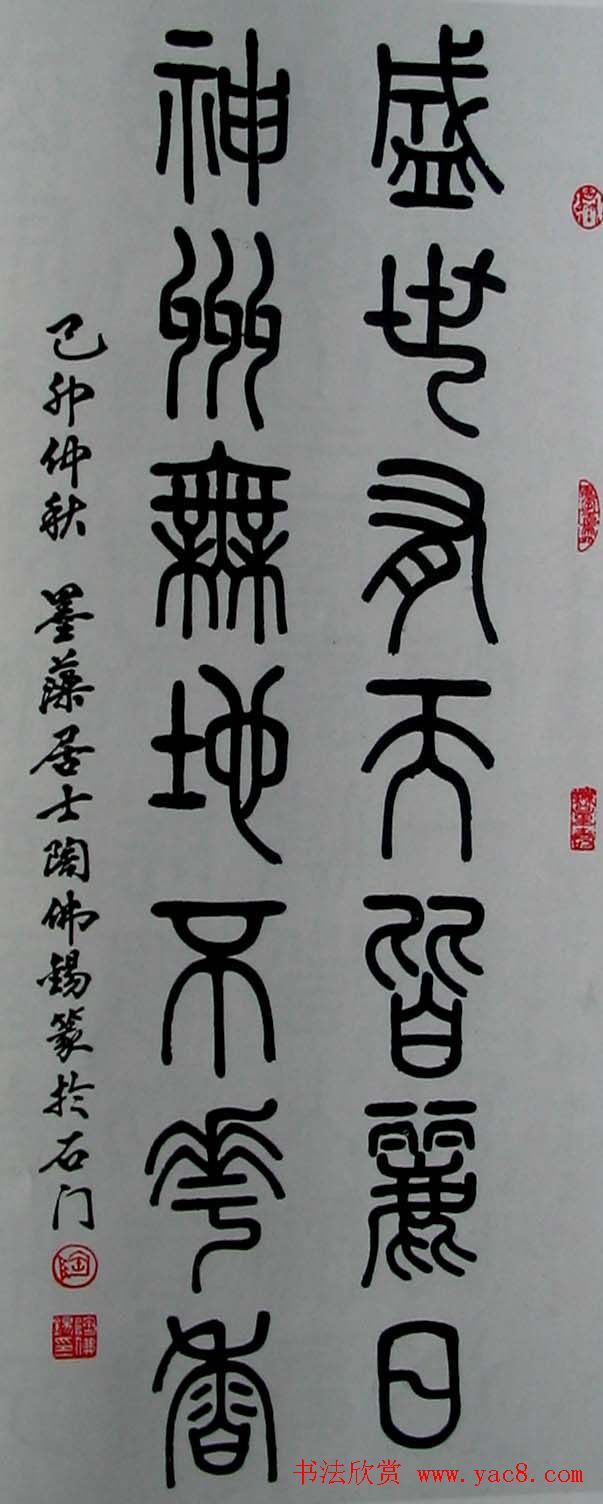 盛世有天皆麗日
神州無地不花香
己卯仲秋 墨藻居士陶佛錫篆於石门
陶
书法欣赏 www.yac8.com